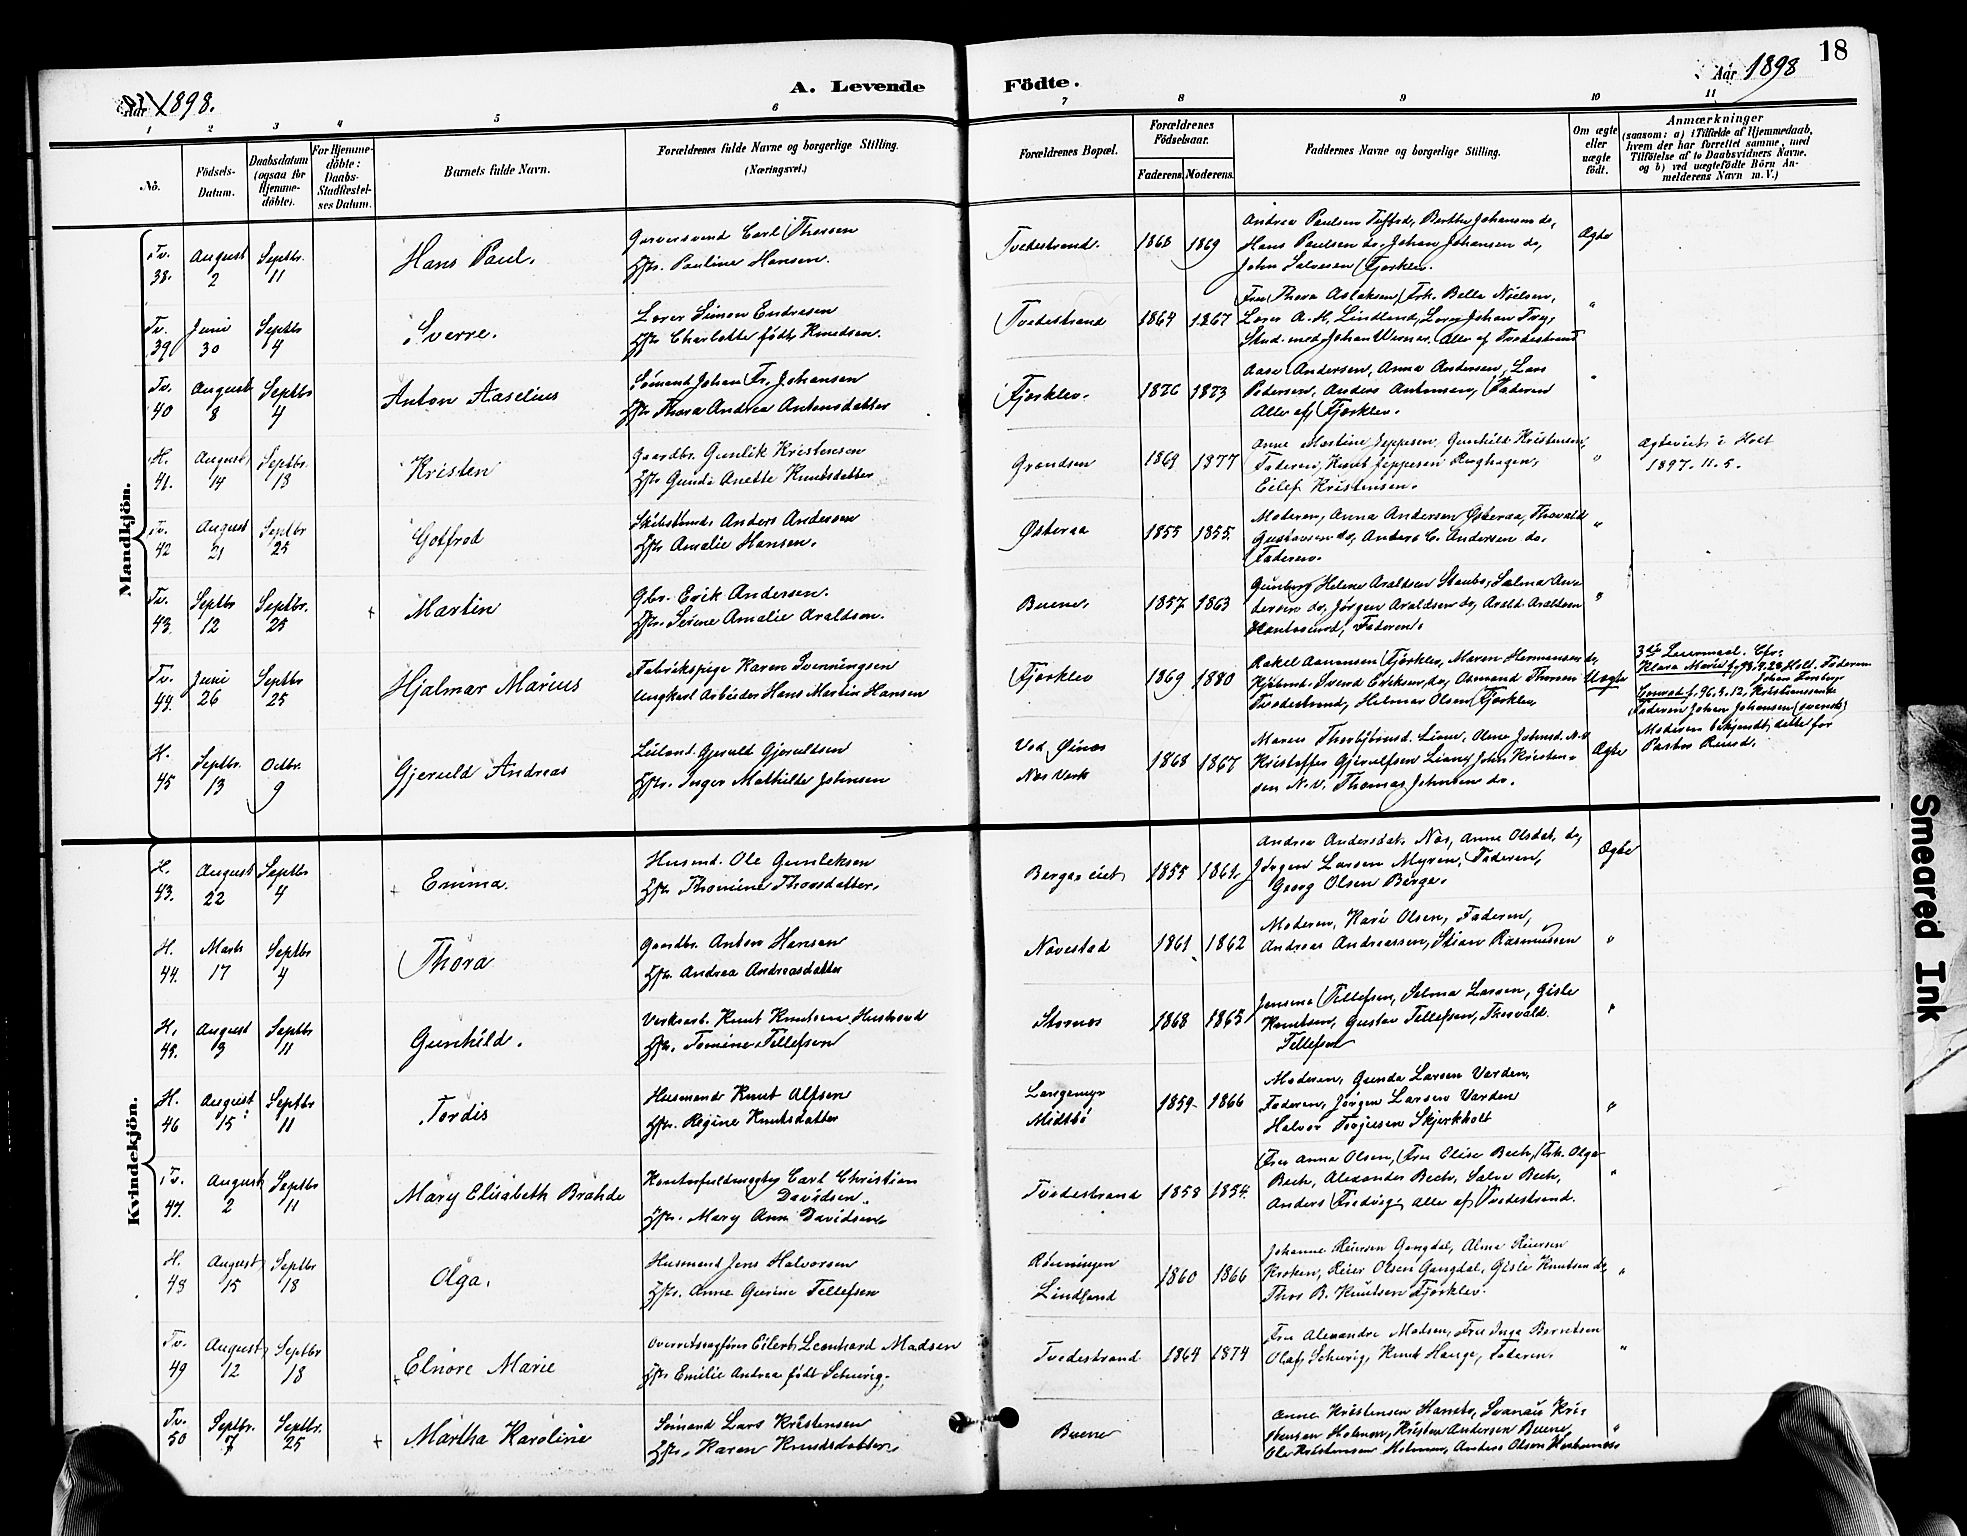 18
A. Levende Födte.
Aar 1898.
Aar 1898
1 2 3 4 5 6 7 8 9 10 11
No.
Födsels-Datum.
Daabsdatum (ogsaa for Hjemmedöbte).
For Hjemmedöbte: Daabs-Stadfæstelses Datum.
Barnets fulde Navn.
Forældrenes fulde Navne og borgerlige Stilling.
(Næringsvei.)
Forældrenes Bopæl.
Forældrenes Födselsaar.
Faderens. Moderens.
Faddernes Navne og borgerlige Stilling.
Om ægte eller uægte födt.
Anmærkninger
(saasom: a) i Tilfælde af Hjemmedaab,
hvem der har forrettet samme, med
Tilföielse af to Daabsvidners Navne,
og b) ved uægtefödte Börn Anmelderens Navn m. V.)
Mandkjön.
Tv. 38. August 2 Septbr. 11 Hans Paul.
Garversvend Carl Thorsen
Hstr. Pauline Hansen.
Tvedestrand. 1868 1869
Andrea Paulsen, Berthe Johansen do,
Hans Paulsen do. Johan Johansen do,
John Salvesen Fjærklev.
Ægte
Tv. 39 Juni 30 Septbr 4 Sverre.
Lærer Simon Endresen
Hstr Charlotte födt Knudsen.
Tvedestrand 1864 1867
Fru Thora Aslaksen, Frk. Bella Nielsen,
Lærer A. H. Lindland, Johan
Stud. med. Johan Werner. Alle af Tvedestrand
"
Tv. 40 August 8 Septbr 4 Anton Aaselius
Sömand Johan Fr. Johansen
Hstr Thora Andrea Antonsdatter
Fjærklev. 1876 1873
Aase Andersen, Anna Andersen, Lars
Pedersen, Anders Antonsen, Faderen
Alle af Fjærklev.
"
H. 41. August 14 Septbr. 18 Kristen
Gaardbr. Gunlik Kristensen
Hstr Gunda Anette Knudsdatter
Grændsen 1869 1877
Anne Martine Jeppesen, Gunhild Kristensen,
Faderen, Knut Jeppesen
Eilef Kristensen.
"
Ægteviet i Holt
1897. 11. 5.
Tv. 42 August 21 Septbr 25 Gotfred
Anders Andersen
Hstr Amalie Hansen.
Østeraa 1855 1855.
Moderen, Anna Andersen Østeraa, Thorvald
Gustavsen do, Anders C. Andersen do.
Faderen.
"
Tv. 43. Septbr 12 Septbr. 25 + Martin
Gbr. Erik Andersen.
Hstr. Serene Amalie Araldsen.
Buene. 1857 1863
Gunborg Helene Araldsen Saubö, Salma Andersen do, Jörgen Araldsen do, Arald Araldsen
Faderen.
"
Tv. 44. Juni 26 Septbr 25 Hjalmar Marius
Fabrikspige Karen Svenningsen
Ungkarl Arbeider Hans Martin Hansen
Fjærklev 1869 1880
Rakel Aanonsen Fjærklev, Maren Hermansen do,
Svend Eriksen do, Osmund Thorsen
Tvedestrand, Helmer Olsen Fjærklev
Uægte
3die Leiermaal. Cfr.
Klara Marie f. 93. 7. 28 Holt. Faderen
Johan
Konrad f. 96. 4. 12, Kristianssand
Faderen Johan Johansen (svensk)
Moderen bekjendt dette for
Pastor Ruud.
H. 45 Septbr. 13 Octbr. 9 Gjeruld Andreas
Leiland. Gjeruld Gjeruldsen
Hstr. Inger Mathilde Johnsen
Ved Øinæs Næs Verk 1868 1867
Maren Thorbjörnsd. Liane, Olene Johnsd. N.V
Kristoffer Gjerulfsen Liane, John Kristensen N.V. Thomas Johnsen do.
Ægte
Kvindekjön.
H. 43. August 22 Septbr 4 + Emma.
Husmd. Ole Gunleksen
Hstr Thomine Thorsdatter.
Berge eiet 1855 1861.
Andrea Andersdat. Næs, Anne Olsdat. do,
Jörgen Larsen Myren, Faderen,
Georg Olsen Berge.
Ægte
H. 44. Marts 17 Septbr 4 Thora
Gaardbr. Anton Hansen
Hstr. Andrea Andreasdatter
Navestad 1861 1862
Moderen, Kari Olsen, Faderen,
Andreas Andreassen, Stian Rasmussen
"
H. 45. August 3 Septbr 11 Gunhild.
Verksarb. Knut Knutsen
Hstr. Tomine Tellefsen
Stornæs 1868 1865
Jensine Tellefsen, Selma Larsen, Gisle
Knutsen, Gustav Tellefsen, Thorvald
Tellefsen
"
H. 46 August 15 Septbr 11 Tordis
Husmand Knut Olfsen
Hstr. Regine Knutsdatter
Langemyr Midtbö 1859 1866
Moderen, Gunda Larsen Varden,
Faderen, Jörgen Larsen Varden
Halvor Torjusen Skjerkholt
"
Tv. 47. August 2 Septbr 11 Mary Elisabeth Brahde
Kontorfuldmægtig Carl Christian
Davidsen.
Hstr. Mary Ann Davidsen
Tvedestrand 1858 1854.
Fru Anna Olsen, Fru Elise Bech, Frk. Olga
Bech, Alexander Bech, Salve Bech,
Anders alle af Tvedestrand.
"
H. 48 August 15 Septbr 18 Olga.
Husmand Jens Halvorsen
Hstr. Anne Gurine Tellefsen
Rönningen Lindland 1860 1866
Johanne Reiersen Gangdal, Alma Reiersen
Kroken, Reier Olsen Gangdal, Gisle Knutsen do,
Thor B. Knutsen Fjærklev.
"
Tv. 49 August 12 Septbr 18 + Elnore Marie
Overretssagförer Eilert Leonhard Madsen
Hstr Emilie Andrea födt Schurig
Tvedestrand 1864 1874
Fru Alexandra Madsen, Fru Inga Berntsen
Olaf Schurig, Knut Hauge, Faderen.
"
Tv. 50 Septbr. 7 Septbr. 25 + Martha Karoline
Sömand Lars Kristensen
Hstr. Karen Knudsdatter
Buene
Anne Kristensen Hansbo, Svanaug Kristensen Holmen, Kristen Andersen Buene,
Ole Kristensen Holmen, Anders Olsen
"
Smeared Ink